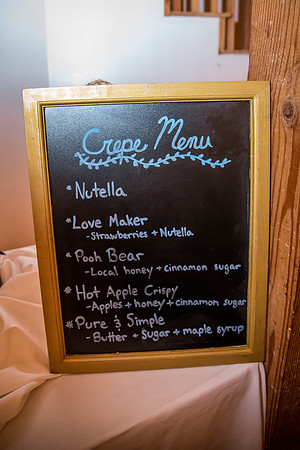 Crepe Menu
* Nutella
* Love Maker
- Strawberries + Nutella
* Pooh Bear
- Local honey + cinnamon sugar
* Hot Apple Crispy
- Apples + honey + cinnamon sugar
* Pure & Simple
- Butter + Sugar + maple syrup